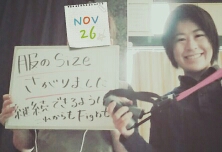 NOV
26
服のSize
さがりました
継続できるように
これからもFight